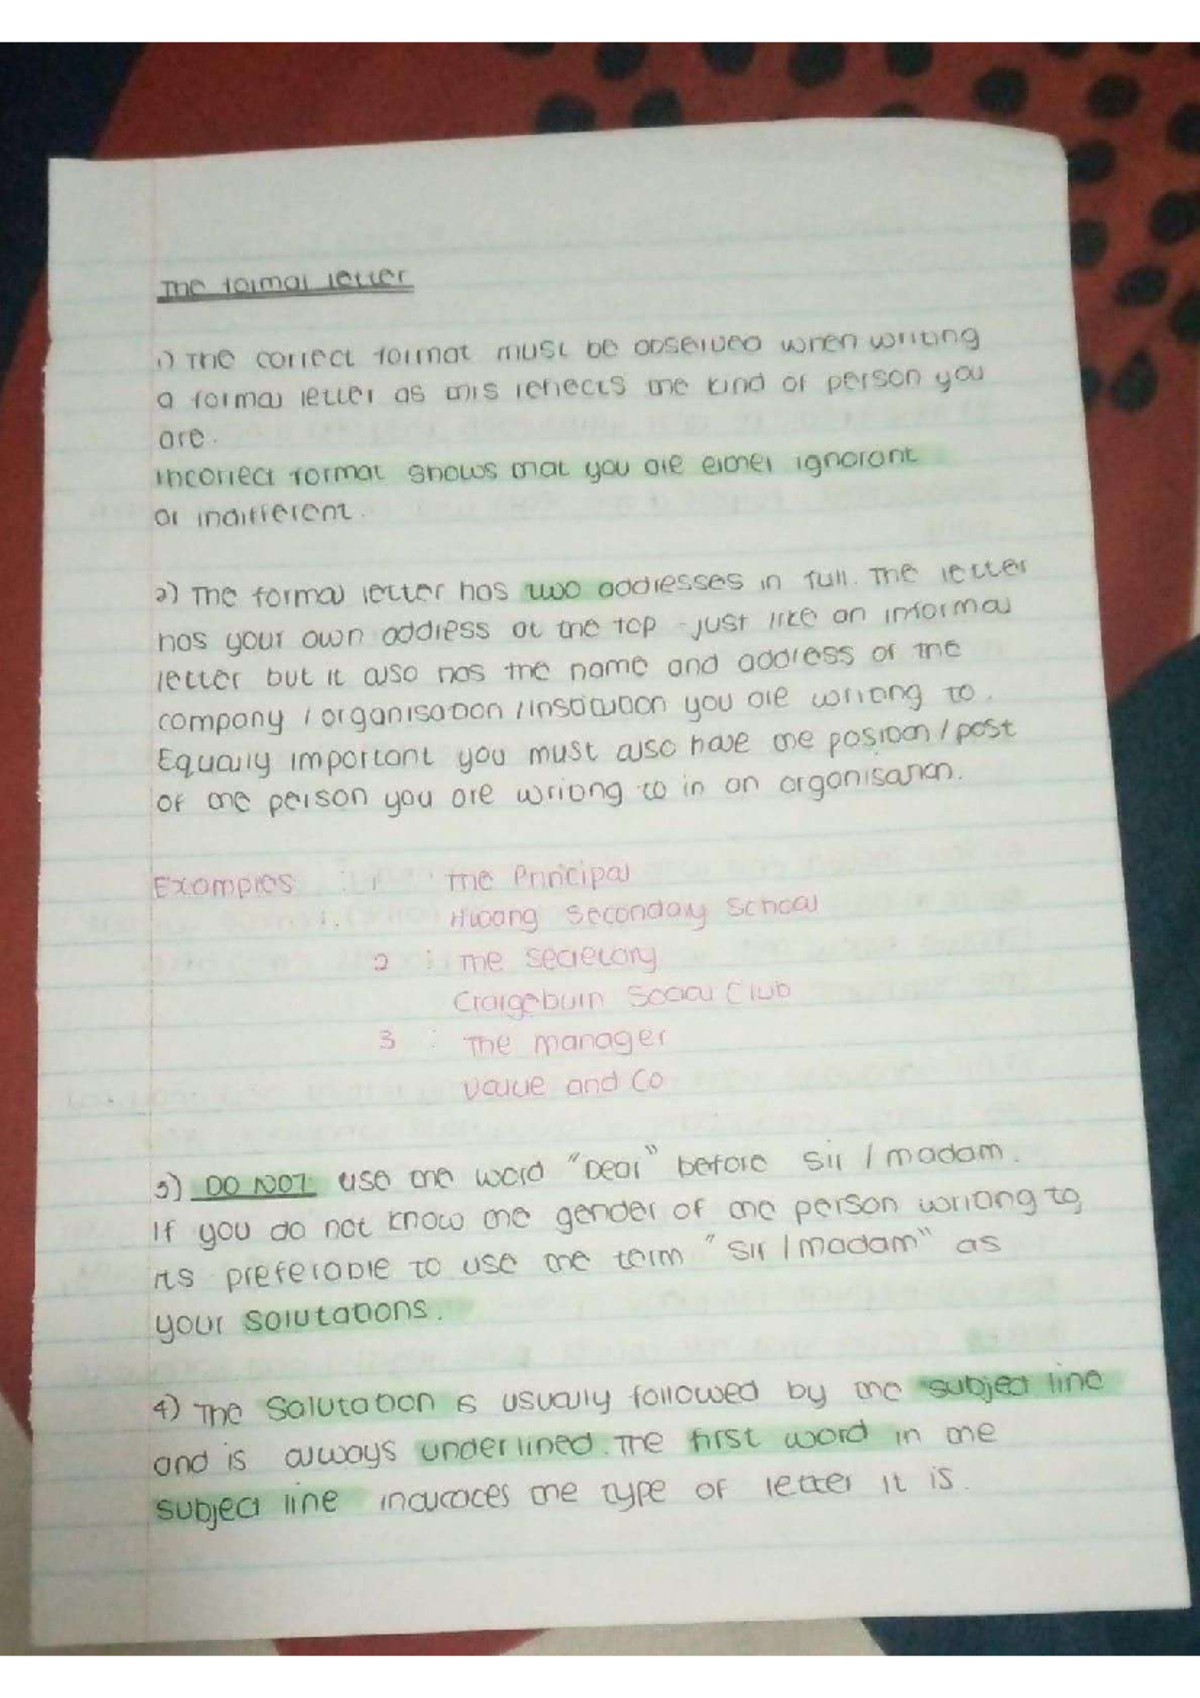 The formal letter
1) The correct format must be observed when writing
a formal letter as this reflects the kind of person you
are.
Incorrect format shows that you are either ignorant
or indifferent.
2) The formal letter has two addresses in full. The letter
has your own address at the top - just like an informal
letter but it also has the name and address of the
company / organisation / institution you are writing to.
Equally important you must also have the position / post
of the person you are writing to in an organisation.
Examples : 1 The Principal
1. Hwang Secondary School
2 : The Secretary
Craigeburn Social Club
3 : The manager
Value and Co
3) DO NOT use the word "Dear" before Sir / madam.
If you do not know the gender of the person writing to,
its preferable to use the term "Sir / madam" as
your Salutations.
4) The Salutation is usually followed by the subject line
and is always underlined. The first word in the
subject line indicates the type of letter it is.